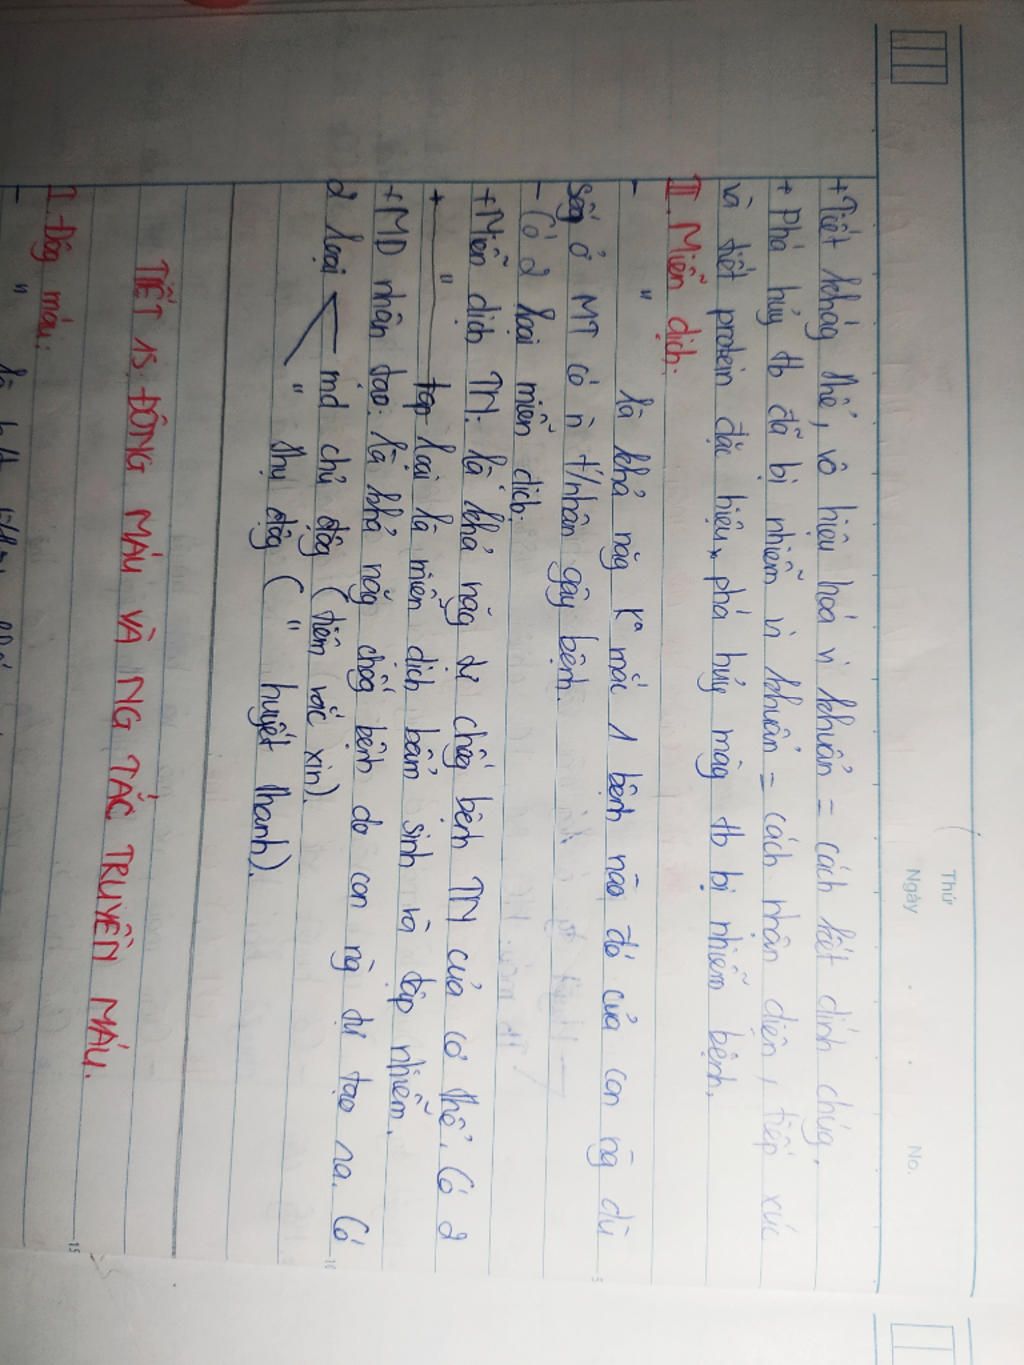 Thứ
Ngày
No.
+ Tiết kháng thể, vô hiệu hoá vi khuẩn = cách kết dính chúng.
+ Phá hủy tb đã bị nhiễm vi khuẩn = cách nhận diện, tiếp xúc
và tiết protein đặc hiệu phá hủy màng tb bị nhiễm bệnh.
II. Miễn dịch.
- " là khả năng K° mắc 1 bệnh nào đó của con ng dù
sống ở MT có n t/nhân gây bệnh.
- Có 2 loại miễn dịch:
+ Miễn dịch TN: là khả năng tự chống bệnh TN của cơ thể. Có 2
loại là miễn dịch bẩm sinh và tập nhiễm.
+ MD nhân tạo: là khả năng chống bệnh do con ng tự tạo ra. Có
2 loại md chủ động (tiêm vắc xin).
" thụ động ( " huyết thanh).
TIẾT 15. ĐÔNG MÁU VÀ NG TẮC TRUYỀN MÁU.
I. Đông máu:
- " là
5
10
15